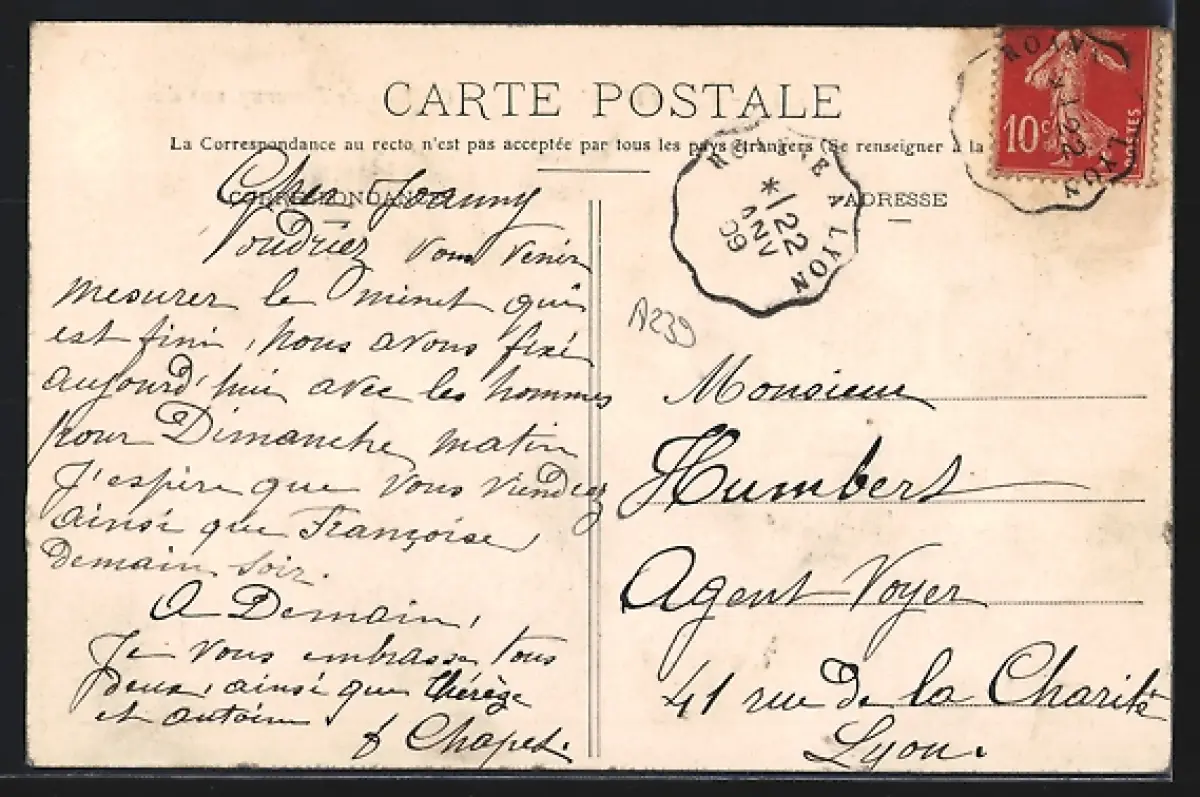 CARTE POSTALE
La Correspondance au recto n'est pas acceptée par tous les pays étrangers (Se renseigner à la
CORRESPONDANCE
ADRESSE
Cher Joanny
Voudriez vous venir
mesurer le minet qui
est fini, nous avons fixé
aujourd'hui avec les hommes
pour Dimanche matin
J'espère que vous viendrez
ainsi que Françoise,
Demain soir.
A Demain,
Je vous embrasse tous
deux, ainsi que Thérèze
et antoine
Chapet.
ROANNE A LYON
* 22
JANV
09
ROANNE
22
LYON
10c
POSTES
A239
Monsieur
Humbert
Agent Voyer
41 rue de la Charité
Lyon.